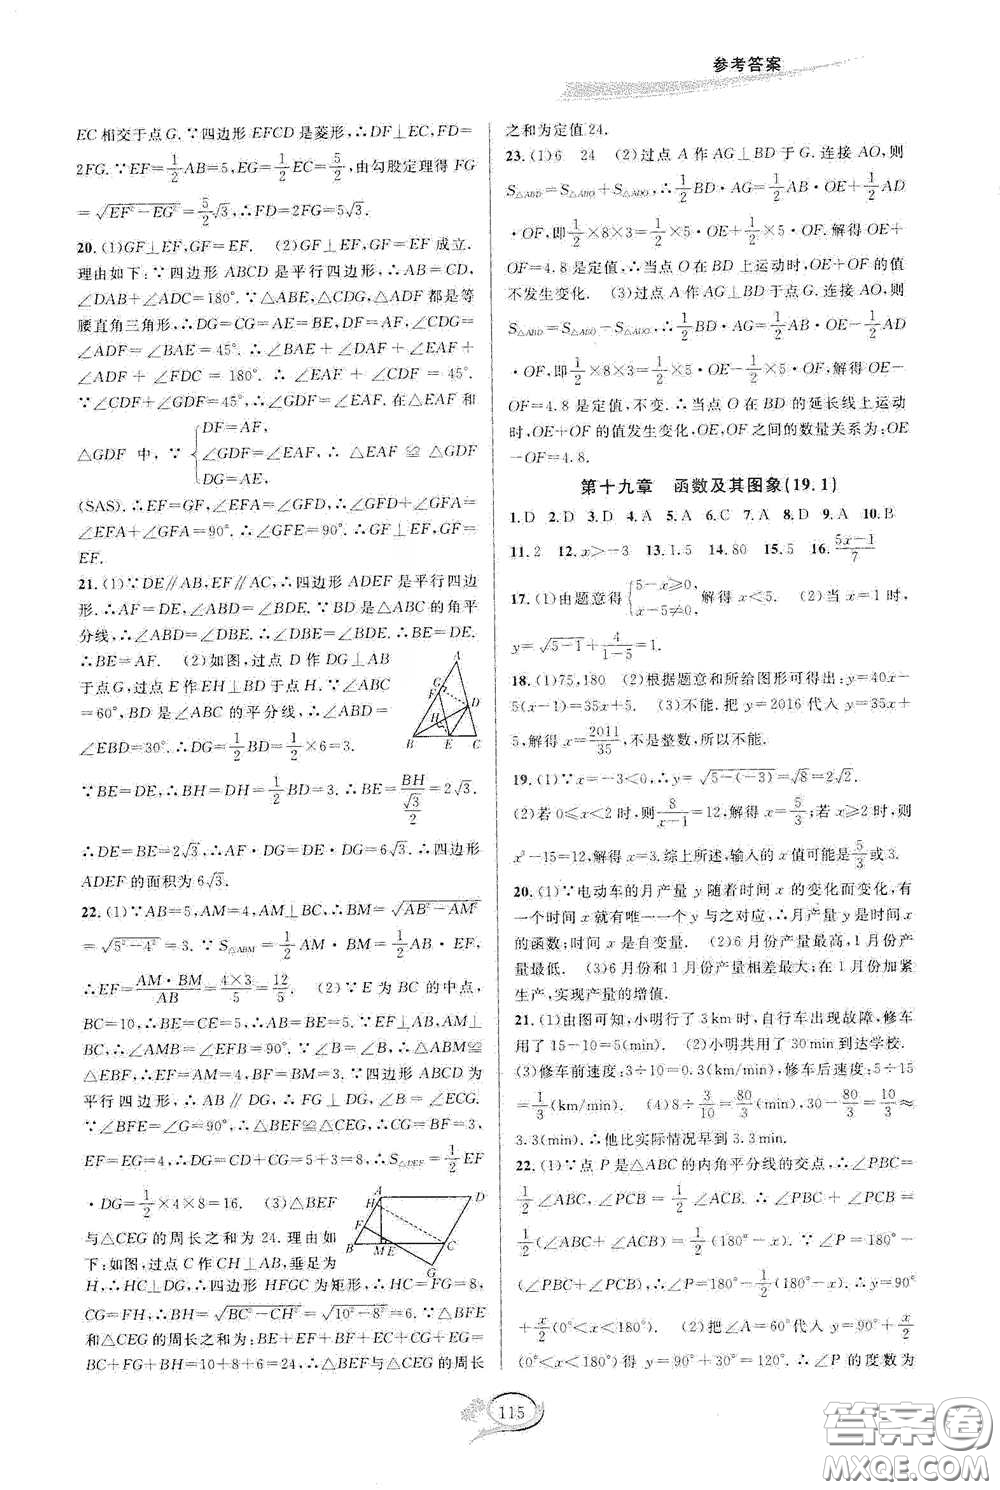 参考答案
EC相交于点G.∵四边形EFCD是菱形,∴DF⊥EC,FD=
2FG.∵EF=1/2AB=5,EG=1/2EC=5/2,由勾股定理得FG
=√(EF²-EG²)=5/2√3,∴FD=2FG=5√3.
20.(1)GF⊥EF,GF=EF. (2)GF⊥EF,GF=EF成立.
理由如下:∵四边形ABCD是平行四边形,∴AB=CD,
∠DAB+∠ADC=180°.∵△ABE,△CDG,△ADF都是等
腰直角三角形,∴DG=CG=AE=BE,DF=AF,∠CDG=
∠ADF=∠BAE=45°.∴∠BAE+∠DAF+∠EAF+
∠ADF+∠FDC=180°.∴∠EAF+∠CDF=45°.
∵∠CDF+∠GDF=45°,∴∠GDF=∠EAF.在△EAF和
△GDF中,∵{DF=AF,
∠GDF=∠EAF,∴△EAF≌△GDF
DG=AE,
(SAS).∴EF=GF,∠EFA=∠GFD,∴∠GFD+∠GFA=
∠EFA+∠GFA=90°.∴∠GFE=90°.∴GF⊥EF,GF=
EF.
21.(1)∵DE∥AB,EF∥AC,∴四边形ADEF是平行四边
形.∴AF=DE,∠ABD=∠BDE.∵BD是△ABC的角平
分线,∴∠ABD=∠DBE.∴∠DBE=∠BDE.∴BE=DE.
∴BE=AF. (2)如图,过点D作DG⊥AB
于点G,过点E作EH⊥BD于点H.∵∠ABC
=60°,BD是∠ABC的平分线,∴∠ABD=
∠EBD=30°.∴DG=1/2BD=1/2×6=3.
∵BE=DE,∴BH=DH=1/2BD=3.∴BE=BH/(√3/2)=2√3.
∴DE=BE=2√3,∴AF·DG=DE·DG=6√3.∴四边形
ADEF的面积为6√3.
22.(1)∵AB=5,AM=4,AM⊥BC,∴BM=√(AB²-AM²)
=√(5²-4²)=3.∵S△ABM=1/2AM·BM=1/2AB·EF,
∴EF=AM·BM/AB=4×3/5=12/5. (2)∵E为BC的中点,
BC=10,∴BE=CE=5,∴AB=BE=5.∵EF⊥AB,AM⊥
BC,∴∠AMB=∠EFB=90°.∵∠B=∠B,∴△ABM≌
△EBF,∴EF=AM=4,BF=BM=3.∵四边形ABCD为
平行四边形,∴AB∥DG,∴FG⊥DG,∴∠B=∠ECG.
∵∠BFE=∠G=90°,∴△BEF≌△CEG,∴CG=BF=3,
EF=EG=4,∴DG=CD+CG=5+3=8,∴S△DEF=1/2EF
·DG=1/2×4×8=16. (3)△BEF
与△CEG的周长之和为24.理由如
下:如图,过点C作CH⊥AB,垂足为
H,∴HC⊥DG,∴四边形HFGC为矩形,∴HC=FG=8,
CG=FH,∴BH=√(BC²-CH²)=√(10²-8²)=6.∵△BFE
和△CEG的周长之和为:BE+EF+BF+CE+CG+EG=
BC+FG+BH=10+8+6=24,∴△BEF与△CEG的周长
之和为定值24.
23.(1)6 24 (2)过点A作AG⊥BD于G.连接AO,则
S△ABD=S△ABO+S△ADO,∴1/2BD·AG=1/2AB·OE+1/2AD
·OF,即1/2×8×3=1/2×5·OE+1/2×5·OF.解得OE+
OF=4.8是定值,∴当点O在BD上运动时,OE+OF的值
不发生变化. (3)过点A作AG⊥BD于点G.连接AO,则
S△ABD=S△ABO-S△ADO,∴1/2BD·AG=1/2AB·OE-1/2AD
·OF,即1/2×8×3=1/2×5·OE-1/2×5·OF.解得OE-
OF=4.8是定值,不变.∴当点O在BD的延长线上运动
时,OE+OF的值发生变化,OE,OF之间的数量关系为:OE
-OF=4.8.
第十九章 函数及其图象(19.1)
1.D 2.D 3.D 4.A 5.A 6.C 7.A 8.D 9.A 10.B
11.2 12.x>-3 13.1.5 14.80 15.5 16.(5x-1)/7
17.(1)由题意得{5-x≥0,
x-5≠0,解得x<5. (2)当x=1时,
y=√(5-1)+4/(1-5)=1.
18.(1)75,180 (2)根据题意和所给图形可得出:y=40x-
5(x-1)=35x+5. (3)不能.把y=2016代入y=35x+
5,解得x=2011/35,不是整数,所以不能.
19.(1)∵x=-3<0,∴y=√(5-(-3))=√8=2√2.
(2)若0≤x<2时,则8/(x-1)=12,解得x=5/3;若x≥2时,
x³-15=12,解得x=3.综上所述,输入的x值可能是5/3或3.
20.(1)∵电动车的月产量y随着时间x的变化而变化,有
一个时间x就有唯一一个y与之对应,∴月产量y是时间x
的函数;时间x是自变量. (2)6月份产量最高,1月份产
量最低. (3)6月份和1月份产量相差最大;在1月份加紧
生产,实现产量的增值.
21.(1)由图可知,小明行了3km时,自行车出现故障,修车
用了15-10=5(min). (2)小明共用了30min到达学校.
(3)修车前速度:3÷10=0.3(km/min),修车后速度:5÷15
=1/3(km/min). (4)8÷3/10=80/3(min),30-80/3=10/3≈
3.3(min).∴他比实际情况早到3.3min.
22.(1)∵点P是△ABC的内角平分线的交点,∴∠PBC=
1/2∠ABC,∠PCB=1/2∠ACB.∴∠PBC+∠PCB=
1/2(∠ABC+∠ACB)=1/2(180°-x).∵∠P=180°-
(∠PBC+∠PCB),∴∠P=180°-1/2(180°-x).∴y=90°
+x/2(0°<x<180°). (2)把∠A=60°代入y=90°+x/2
(0°<x<180°)得y=90°+30°=120°.∴∠P的度数为
A
G
F
D
H
B
E
C
A
H
D
F
B
M
E
C
G
115
答案卷
MXQE.COM